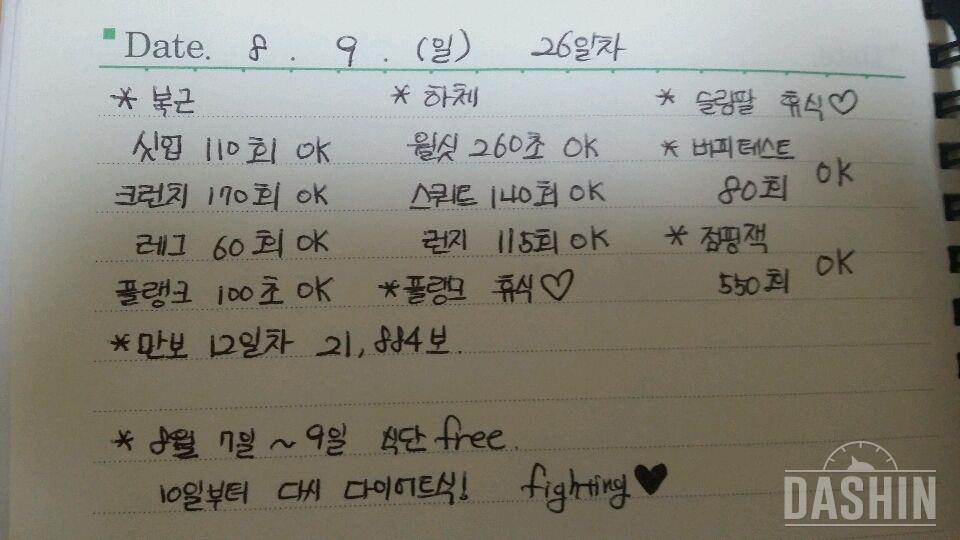 Date. 8 . 9 . (일) 26일차
* 복근
싯업 110회 OK
크런치 170회 OK
레그 60회 OK
플랭크 100초 OK
* 하체
월싯 260초 OK
스쿼트 140회 OK
런지 115회 OK
* 플랭크 휴식♡
* 슬링팔 휴식♡
* 버피테스트
80회 OK
* 점핑잭
550회 OK
* 만보 12일차 21,884보.
* 8월 7일 ~ 9일 식단 free.
10일부터 다시 다이어트식! fighting♥
DASHIN